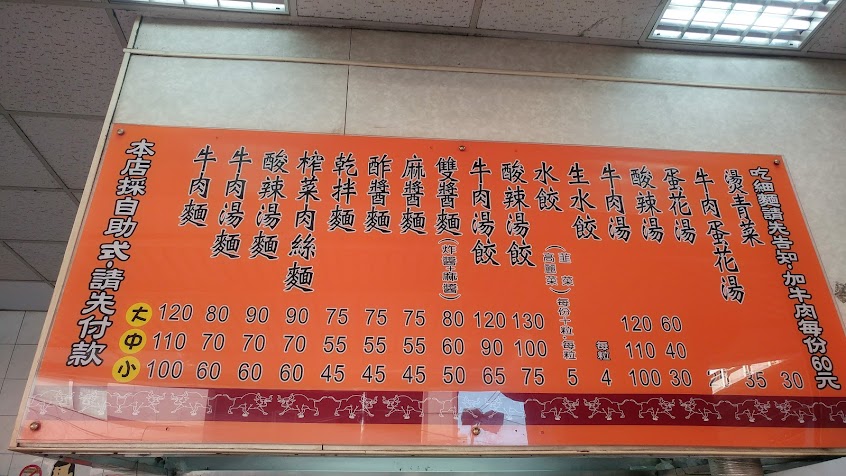 本店採自助式·請先付款
牛肉麵
牛肉湯麵
酸辣湯麵
榨菜肉絲麵
乾拌麵
酢醬麵
麻醬麵
雙醬麵(炸醬+麻醬)
牛肉湯餃
酸辣湯餃
水餃(韭菜 高麗菜)每份十粒·每粒
生水餃 每粒
牛肉湯
酸辣湯
蛋花湯
牛肉蛋花湯
燙青菜
吃細麵請先告知·加牛肉每份60元
大 120 80 90 90 75 75 75 80 120 130 120 60
中 110 70 70 70 55 55 55 60 90 100 110 40
小 100 60 60 60 45 45 45 50 65 75 5 4 100 30 35 30